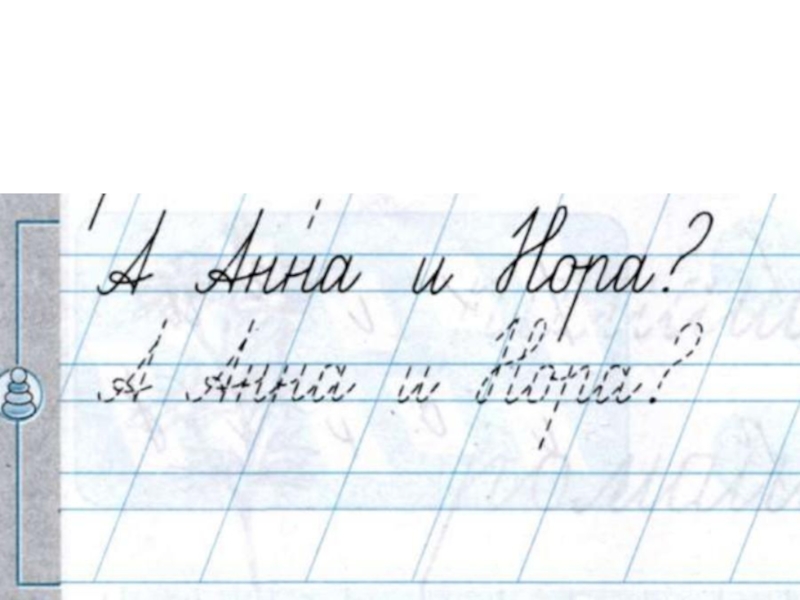 А Анна и Нора?
А Анна и Нора?